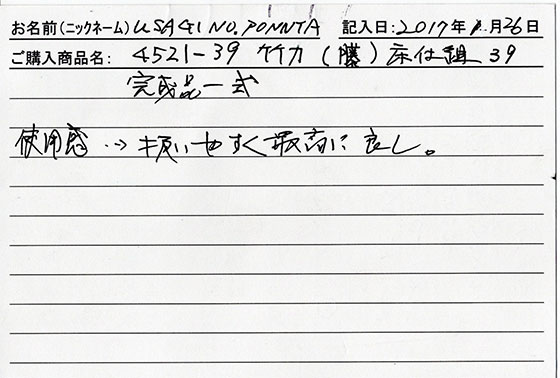 お名前(ニックネーム) USAGI NO. PONNTA 記入日:2017年1月26日
ご購入商品名: 4521-39 竹刀 (藤) 床仕組 39
完成品一式
使用感 …→ 扱いやすく最高に良し。